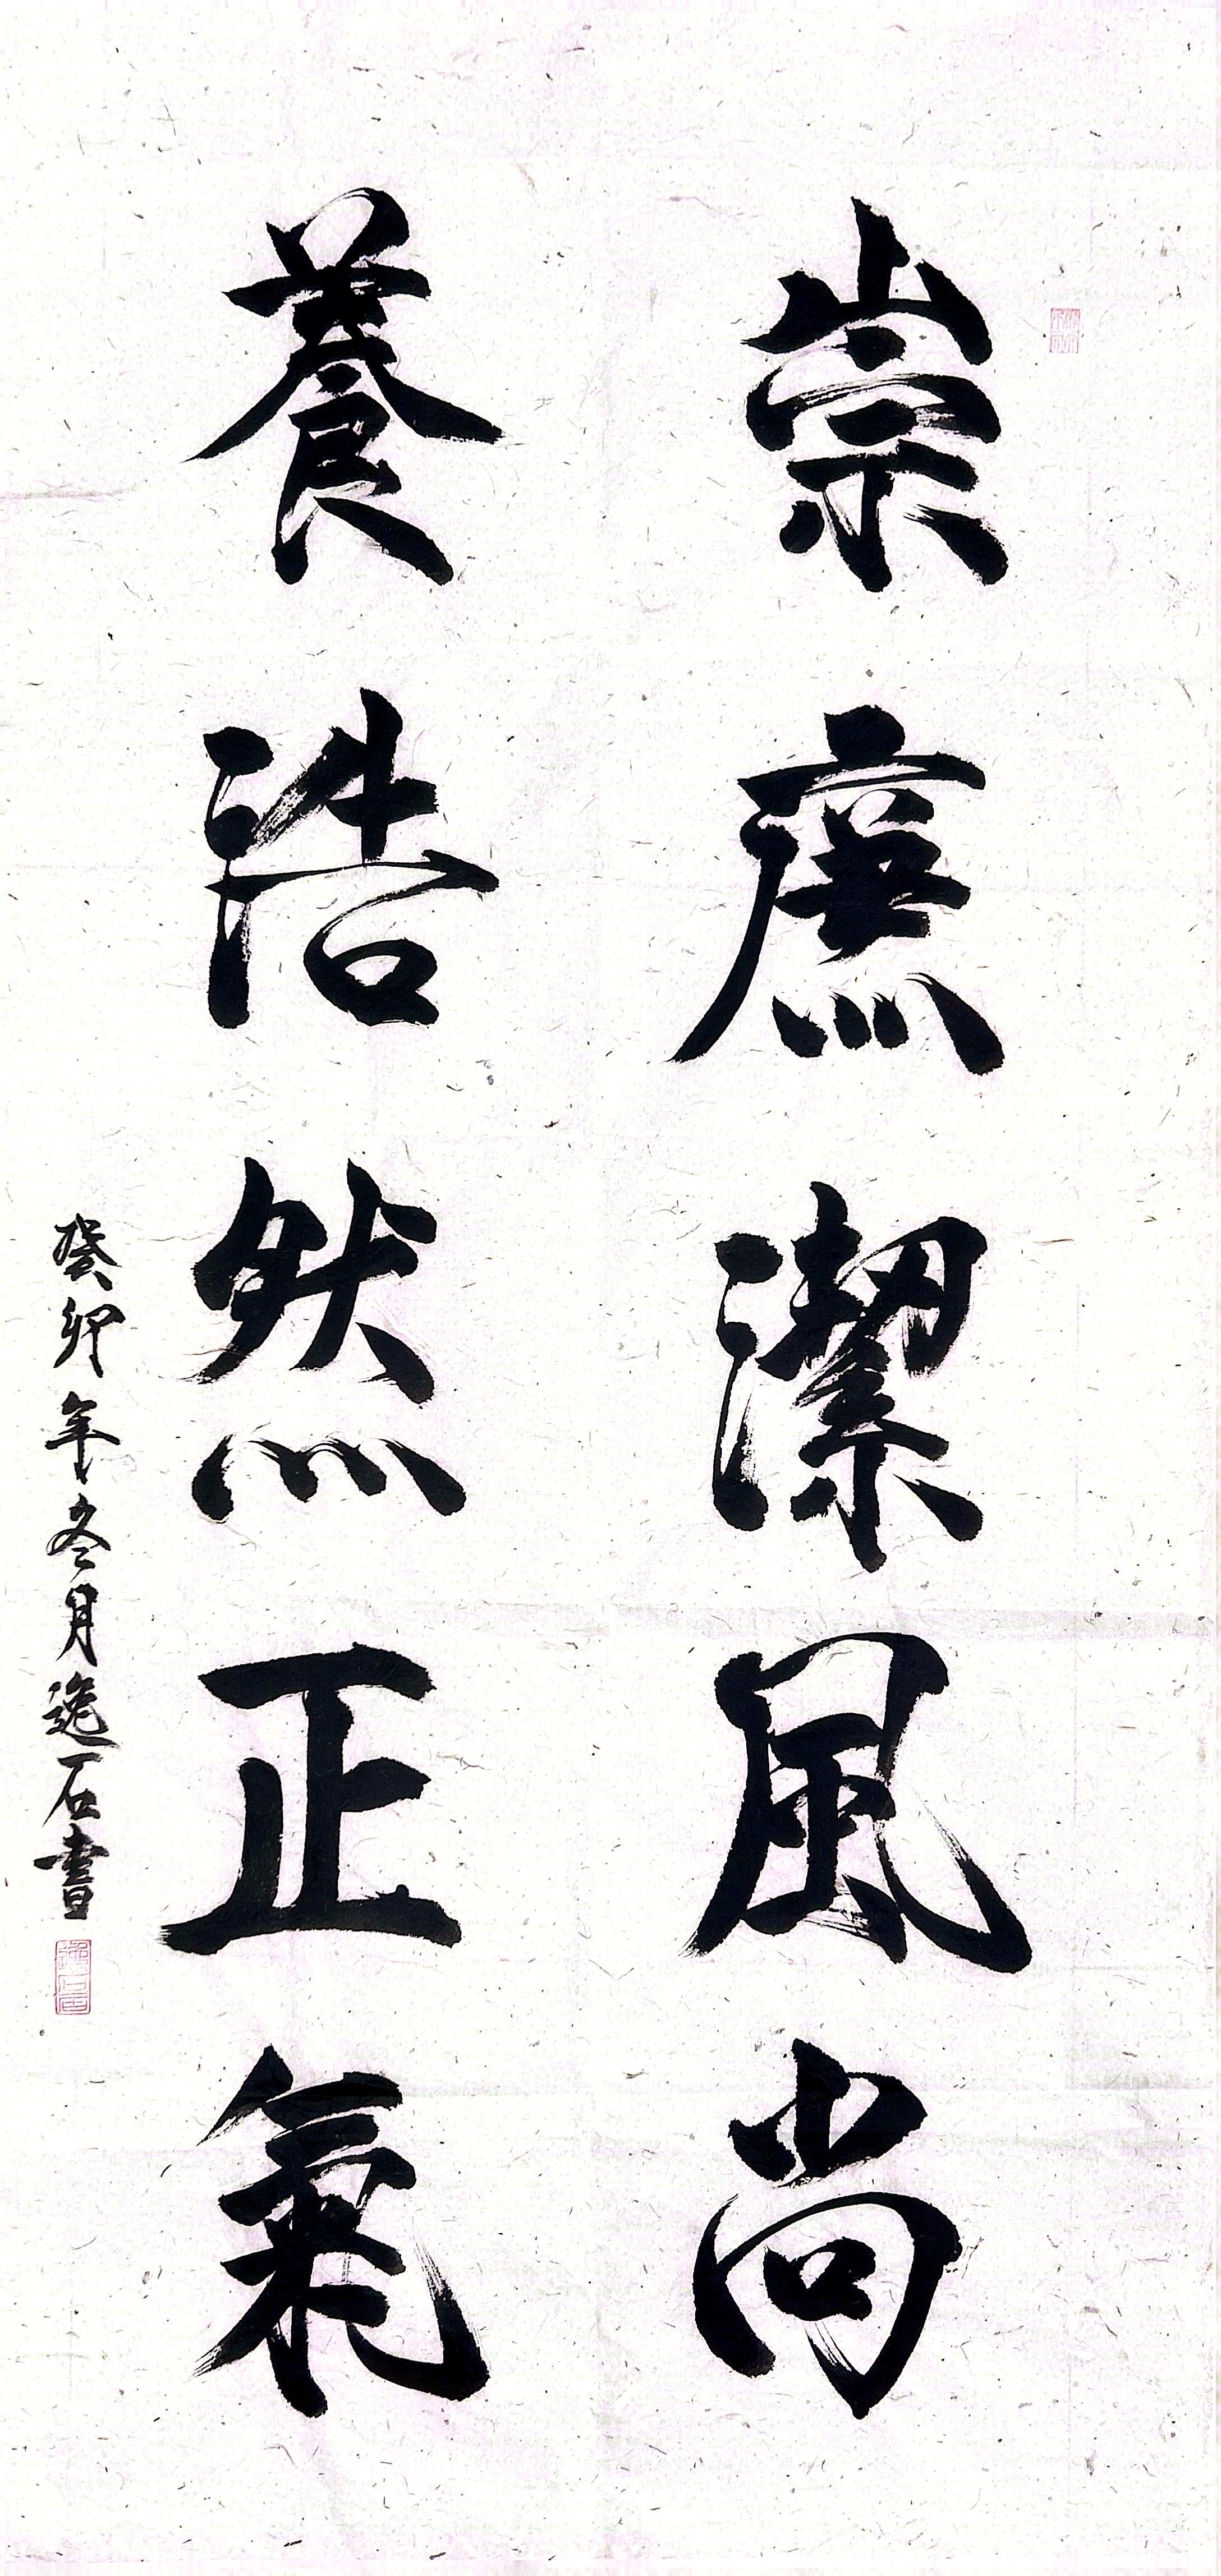 崇廉潔風尚
養浩然正氣
癸卯年冬月逸石書